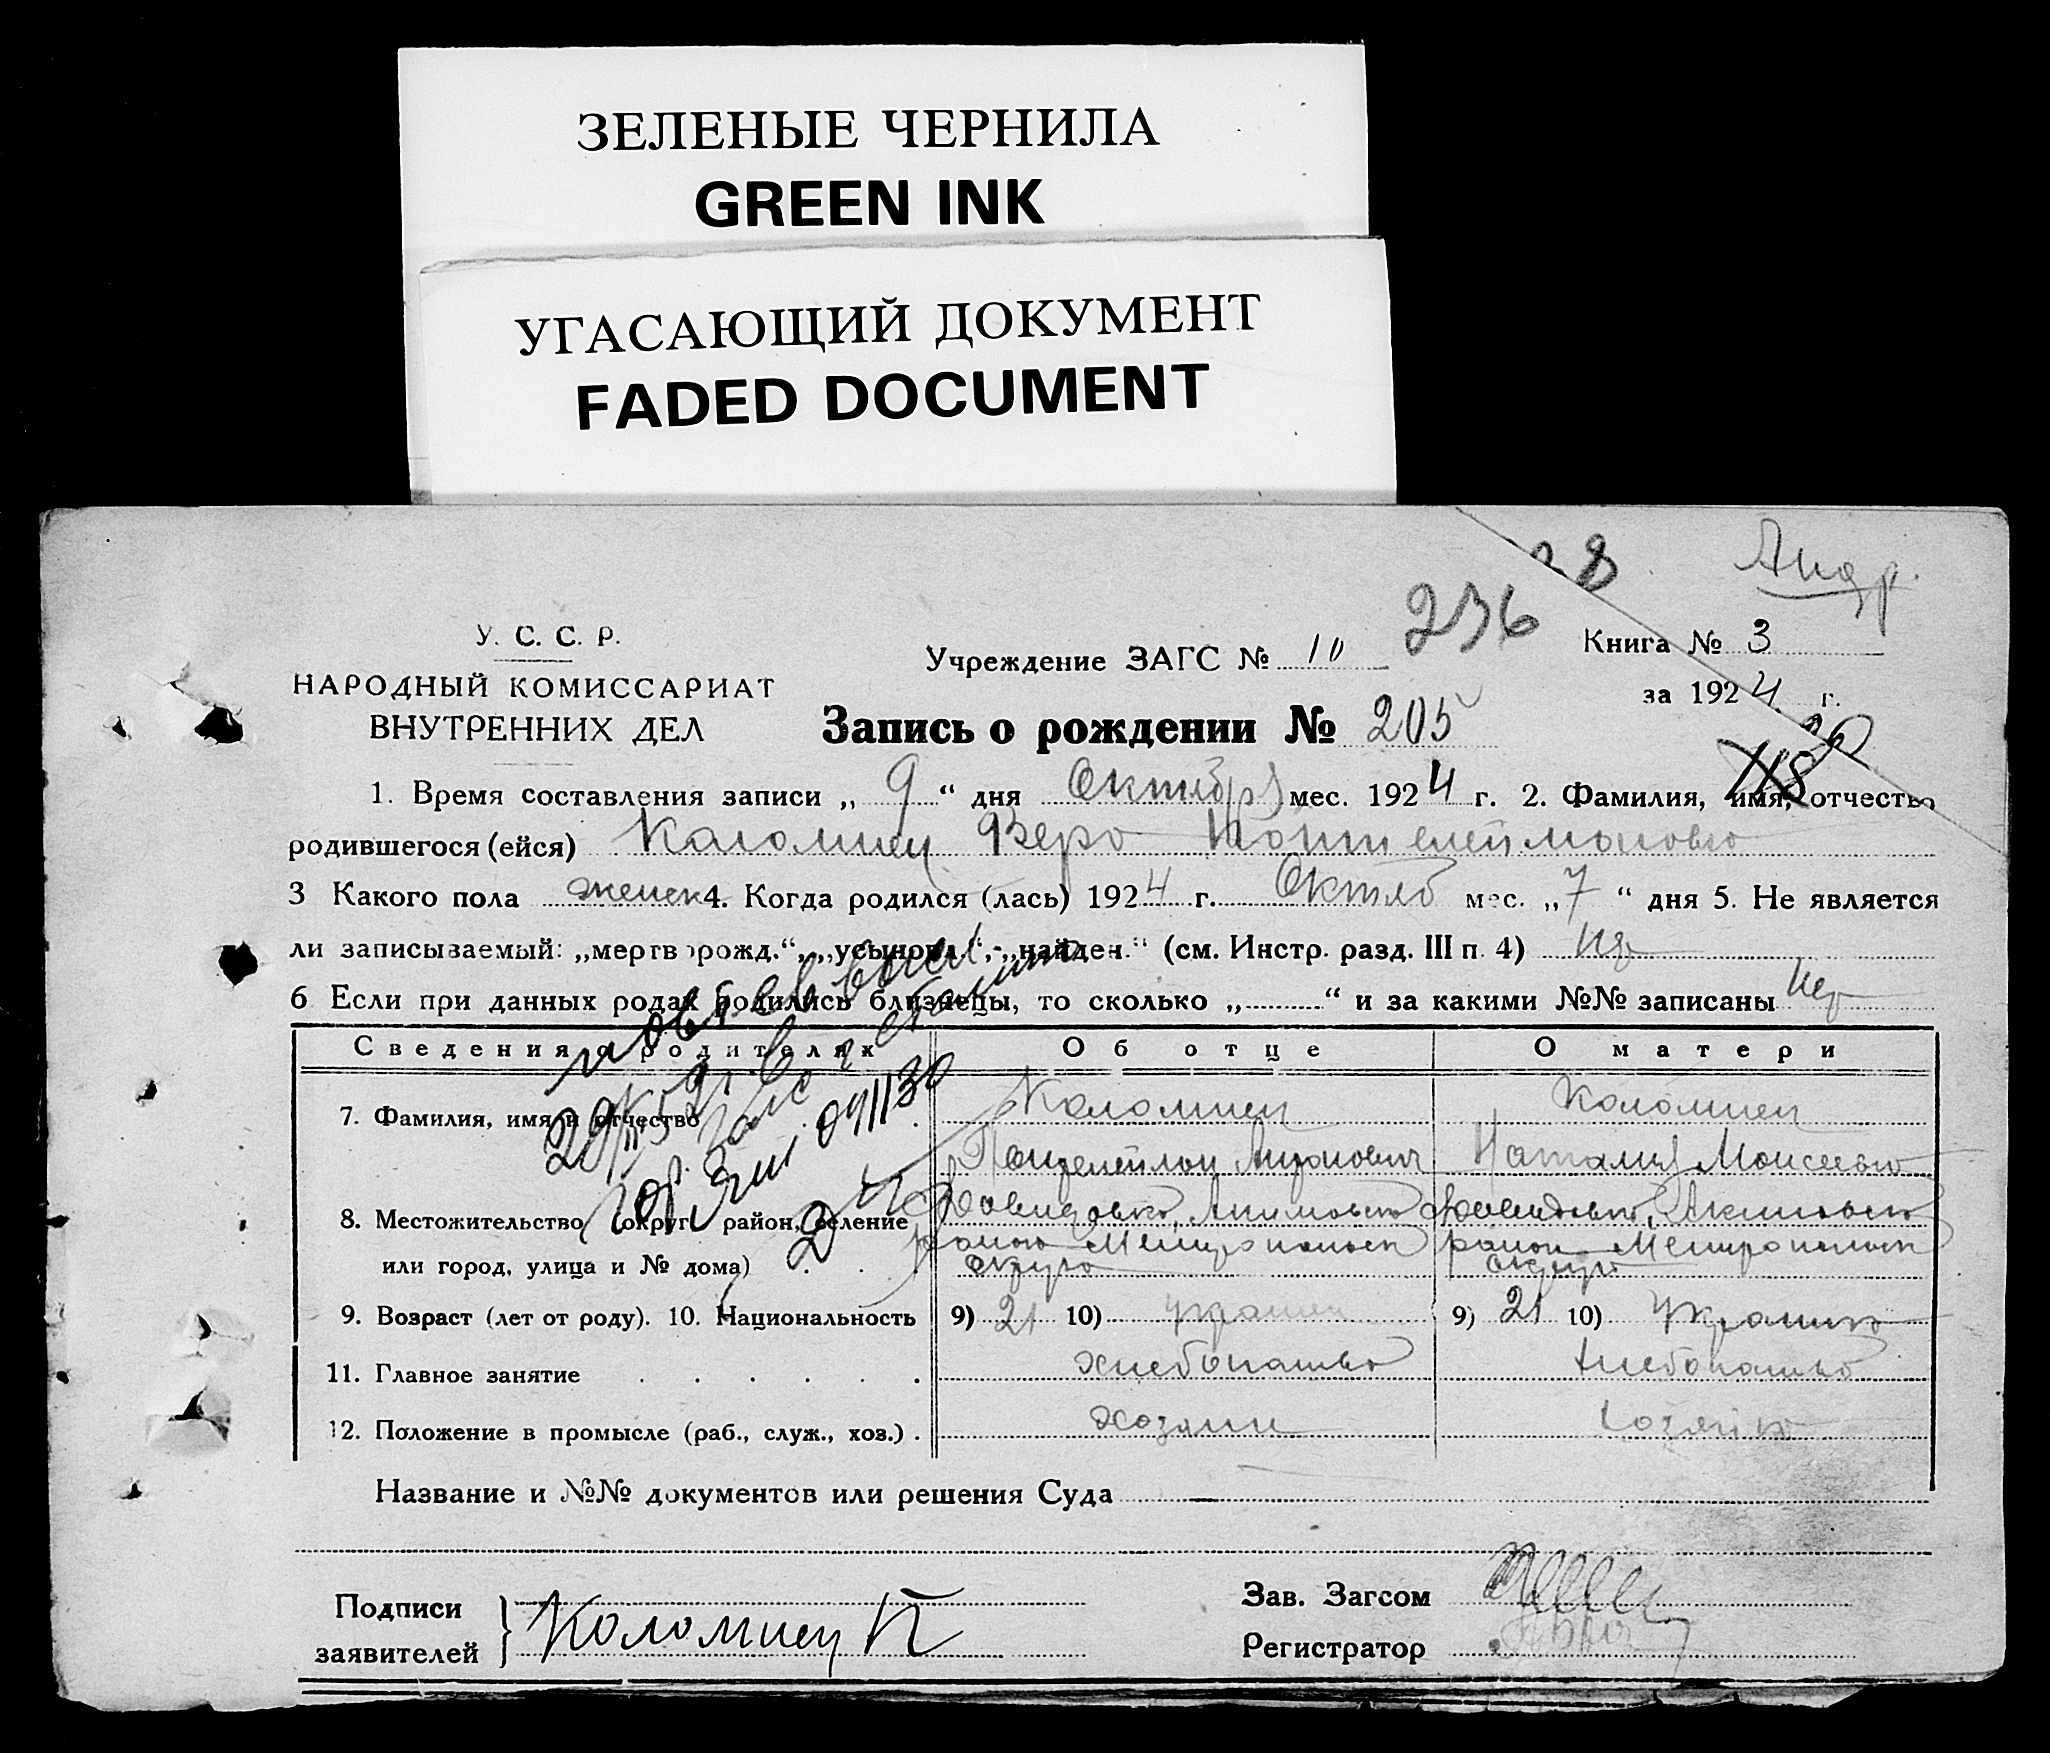 ЗЕЛЕНЫЕ ЧЕРНИЛА
GREEN INK
УГАСАЮЩИЙ ДОКУМЕНТ
FADED DOCUMENT
28 Андр.
У. С. С. Р.
НАРОДНЫЙ КОМИССАРИАТ
ВНУТРЕННИХ ДЕЛ
Учреждение ЗАГС № 10 236
Книга № 3
за 1924 г.
Запись о рождении № 205
118
1. Время составления записи „ 9 “ дня Октября мес. 1924 г. 2. Фамилия, имя, отчество
родившегося (ейся) Коломиец Вера Понтелеймоновна
3 Какого пола женск 4. Когда родился (лась) 1924 г. Октяб мес. „ 7 “ дня 5. Не является
ли записываемый: „мертворожд.“, „усыновл.“, „найден.“ (см. Инстр. разд. III п. 4)
6 Если при данных родах родились близнецы, то сколько „ “ и за какими №№ записаны
Сведения о родителях Об отце О матери
7. Фамилия, имя и отчество Коломиец Коломиец
Наталия Моисеевна
8. Местожительство (округ, район, селение
или город, улица и № дома) округа округа
9. Возраст (лет от роду). 10. Национальность 9) 21 10) украинец 9) 21 10) Украинка
11. Главное занятие хлебопашество хлебопашество
12. Положение в промысле (раб., служ., хоз.) хозяин хозяйка
Название и №№ документов или решения Суда
Подписи
заявителей
Коломиец П
Зав. Загсом
Регистратор